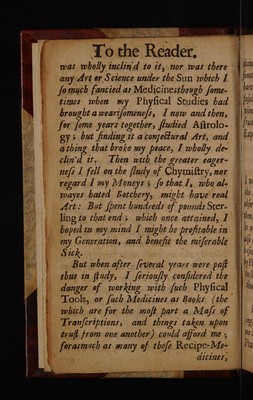 To the Reader.
was wholly inclin'd to it, nor was there
any Art or Science under the Sun which I
ſo much fancied as Medicine: though ſome-
times when my Phyſical Studies had
brought a weariſomeneſs, I now and then,
for ſome years together, ſtudied Aſtrolo-
gy; but finding it a conjectural Art, and
a thing that broke my peace, I wholly de-
clin'd it. Then with the greater eager-
neſs I fell on the ſtudy of Chymiſtry, nor
regard I my Moneys; ſo that I, who al-
wayes hated Botchery, might have real
Art: But ſpent hundreds of pounds Ster-
ling to that end; which once attained, I
hoped in my mind I might be profitable in
my Generation, and benefit the miſerable
Sick.
But when after ſeveral years were paſt
thus in ſtudy, I ſeriouſly conſidered the
danger of working with ſuch Phyſical
Tools, or ſuch Medicines as Books (the
which are for the moſt part a Maſs of
Tranſcriptions, and things taken upon
truſt from one another) could afford me;
foraſmuch as many of theſe Recipe-Me-
dicines,